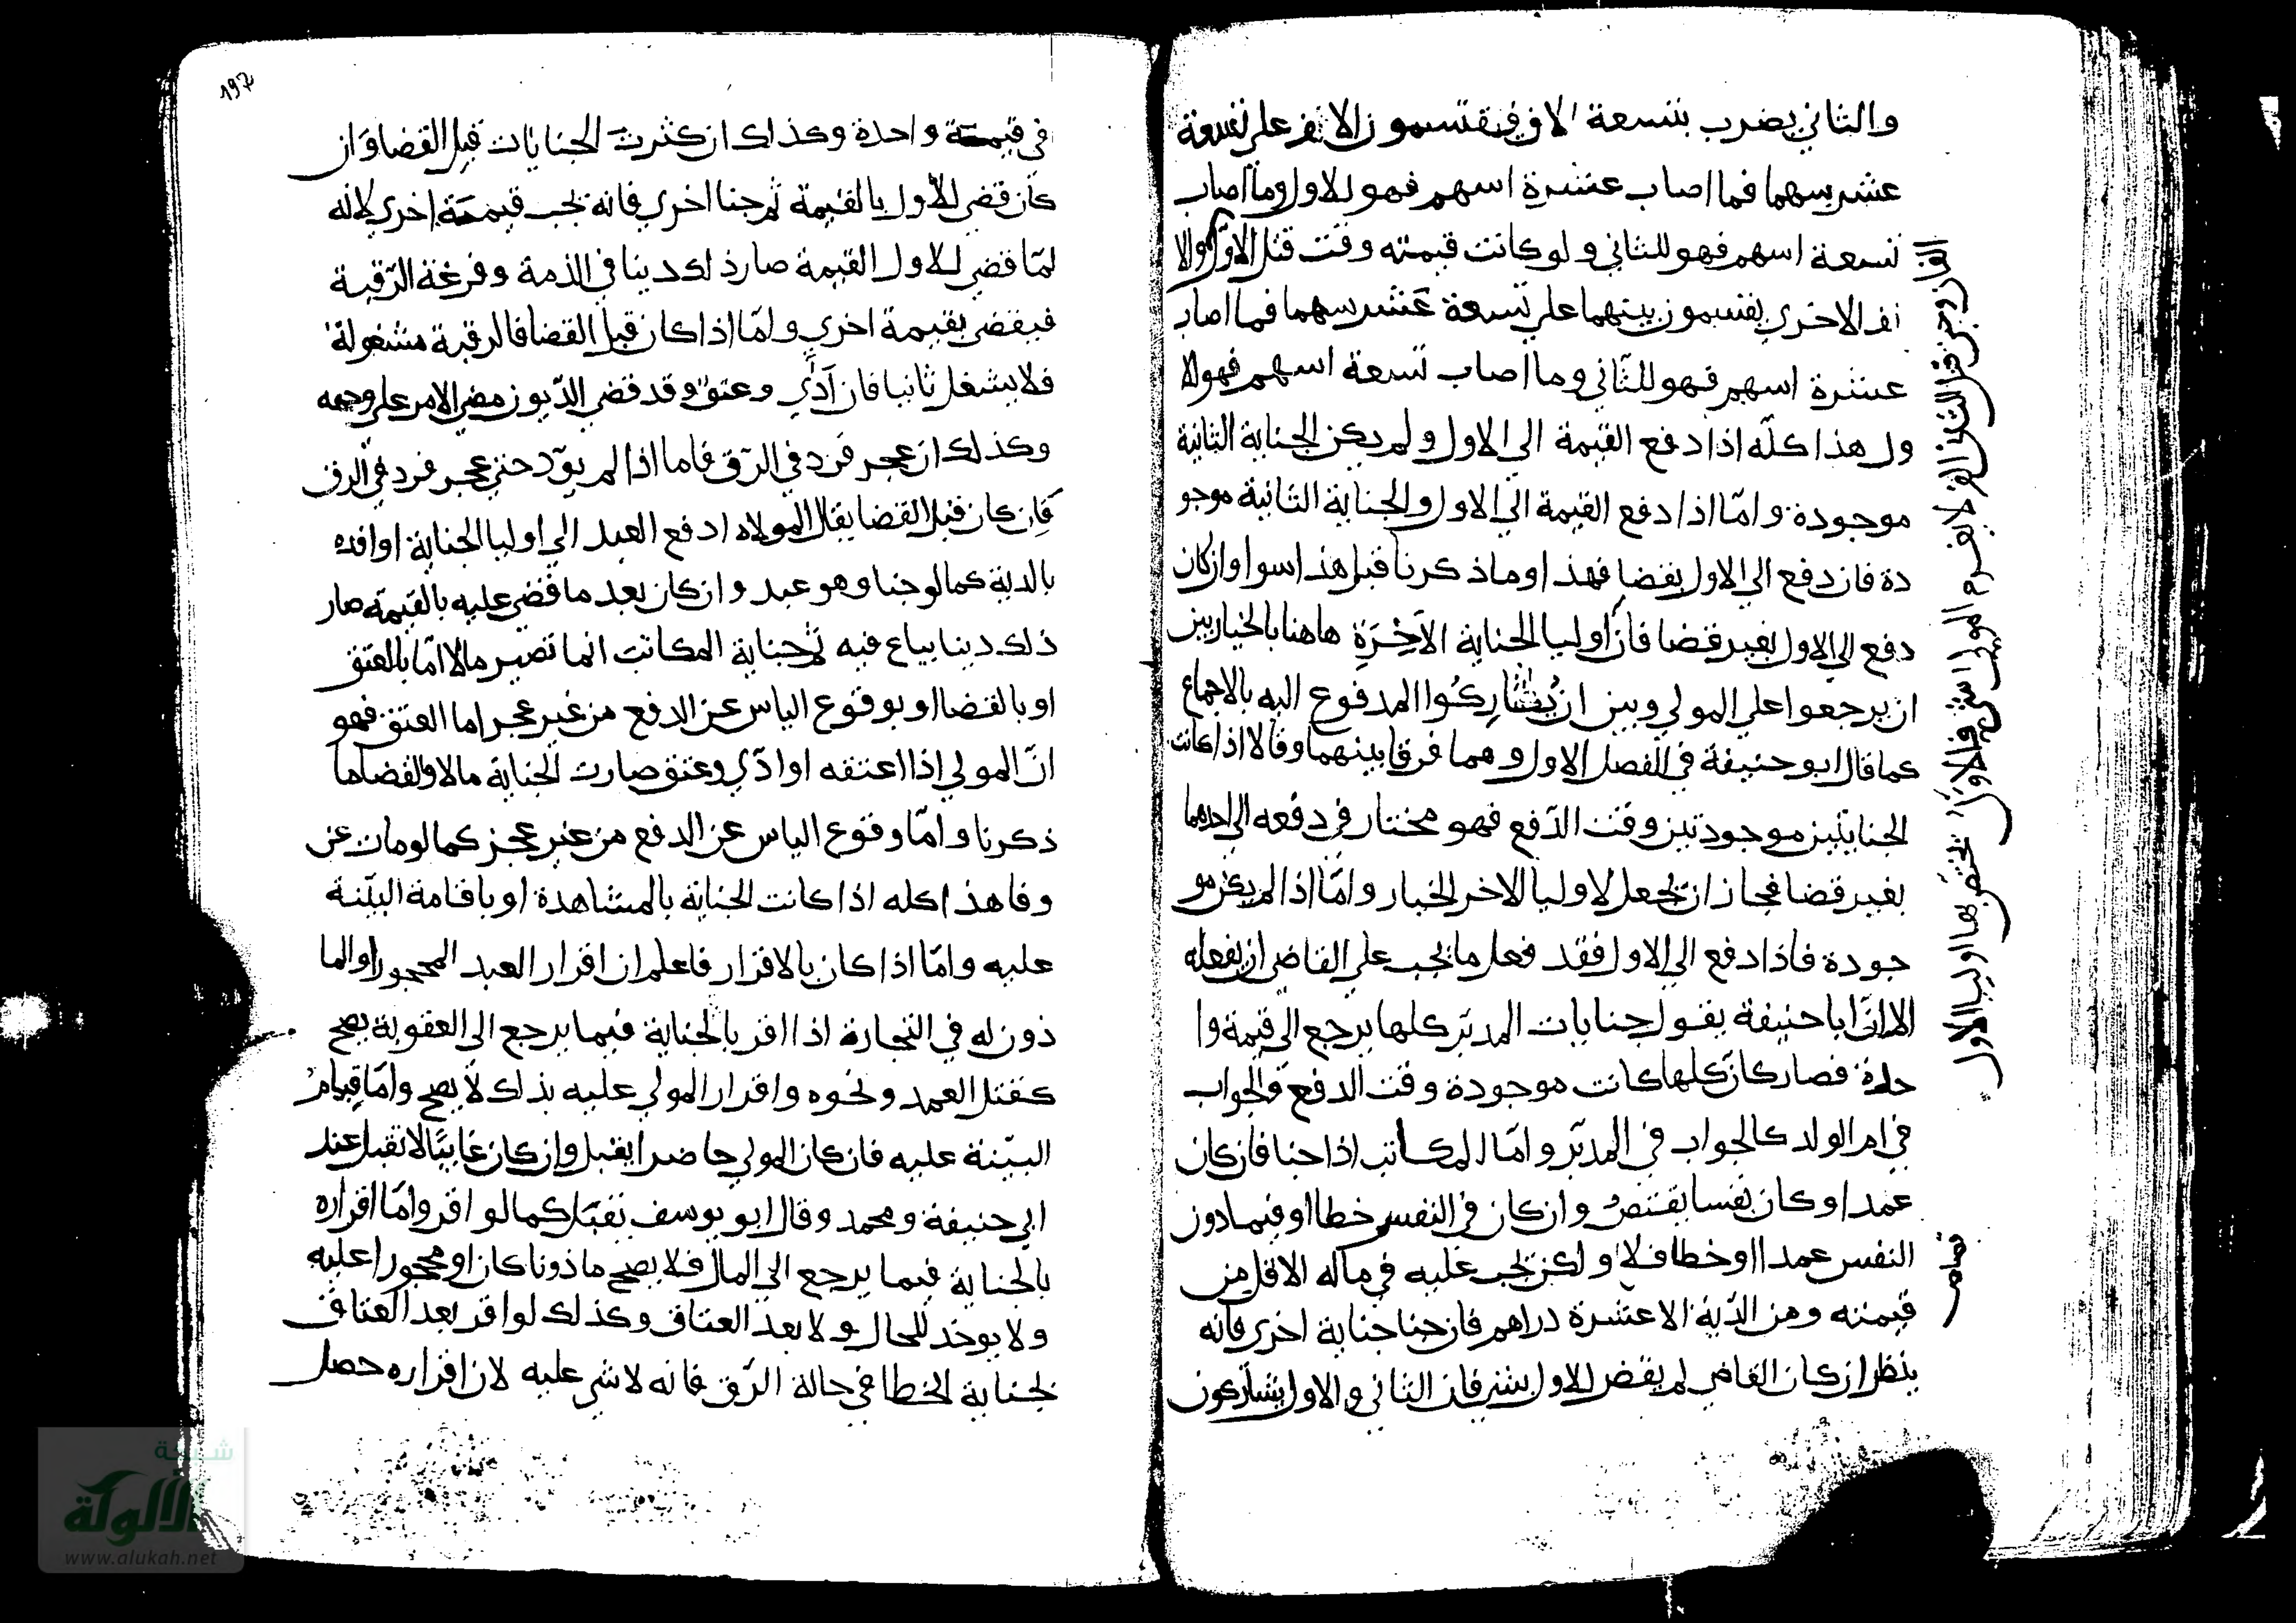 والثاني يضرب بتسعة الاف فيقتسمون الالف علي تسعة
عشر سهما فما اصاب عشرة اسهم فهو للاول وما اصاب
تسعة اسهم فهو للثاني ولو كانت قيمته وقت قتل الاول الا
لف الاخري يقتسمون بينهما علي تسعة عشر سهما فما اصاب
عشرة اسهم فهو للثاني وما اصاب تسعة اسهم فهو للا
ول هذا كله اذا دفع القيمة الي الاول ولم يكن الجناية الثانية
موجودة واما اذا دفع القيمة الي الاول والجناية الثانية موجو
دة فان دفع الي الاول بقضا فهذا وما ذكرنا قبل هذا سوا وان كان
دفع الي الاول بغير قضا فان اوليا الجناية الاخرة هاهنا بالخيار بين
ان يرجعوا علي المولي وبين ان يشاركوا المدفوع اليه بالاجماع
كما قال ابو حنيفة في الفصل الاول وهما فرقا بينهما وقالا اذا كانت
الجنايتين موجودتين وقت الدفع فهو مختار في دفعه الي احدهما
بغير قضا فجاز ان يجعل لاوليا الاخر الخيار واما اذا لم يكن مو
جودة فاذا دفع الي الاول فقد فعل ما يجب علي القاضي ان يفعله
الا ان ابا حنيفة يقول جنايات المدبر كلها يرجع الي قيمة وا
حدة فصار كان كلها كانت موجودة وقت الدفع والجواب
في ام الولد كالجواب في المدبر واما المكاتب اذا جنا فان كان
عمدا وكان نفسا يقتص وان كان في النفس خطا او فيما دون
النفس عمدا او خطا فلا ولكن يجب عليه في ماله الاقل من
قيمته ومن الدية الا عشرة دراهم فان جنا جناية اخري فانه
ينظر ان كان القاضي لم يقض للاول بشي فان الثاني والاول يتشاركون
قصاص
197
في قيمة واحدة وكذلك ان كثرت الجنايات قبل القضا وان
كان قضي للاول بالقيمة ثم جنا اخري فانه يجب قيمة اخري لانه
لما قضي للاول القيمة صار ذلك دينا في الذمة وفرغة الرقبة
فيقضي بقيمة اخري ولما اذا كان قبل القضا فالرقبة مشغولة
فلا يشغل ثانيا فان ادي وعتق وقد قضي الديون مضي الامر علي وجهه
وكذلك ان عجز فرد في الرق فاما اذا لم يود حتي عجز فرد في الرق
فان كان قبل القضا يقال لمولاه ادفع العبد الي اوليا الجناية او افده
بالدية كما لو جنا وهو عبد وان كان بعد ما قضي عليه بالقيمة صار
ذلك دينا يباع فيه ثم جناية المكاتب انما تصير مالا اما بالعتق
او بالقضا او بوقوع الياس عن الدفع من غير عجز اما العتق فهو
ان المولي اذا اعتقه او ادي وعتق صارت الجناية مالا والقضا كما
ذكرنا واما وقوع الياس عن الدفع من غير عجز كما لو مات عن
وفا هذا كله اذا كانت الجناية بالمشاهدة او باقامة البينة
عليه واما اذا كان بالاقرار فاعلم ان اقرار العبد المحجور او الما
ذون له في التجارة اذا اقر بالجناية فيما يرجع الي العقوبة يصح
كقتل العمد ونحوه واقرار المولي عليه بذلك لا يصح واما قيام
البينة عليه فان كان المولي حاضرا يقبل وان كان غايبا لا تقبل عند
ابي حنيفة ومحمد وقال ابو يوسف تقبل كما لو اقر واما اقراره
بالجناية فيما يرجع الي المال فلا يصح ماذونا كان او محجورا عليه
ولا يوخذ للحال ولا بعد العتاق وكذلك لو اقر بعد العتاق
لجناية الخطا في حالة الرق فانه لا شي عليه لان اقراره حصل
شبكة
الألوكة
www.alukah.net